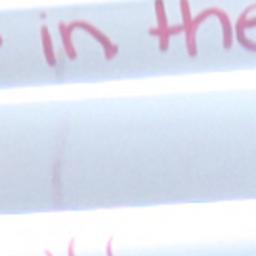 in the